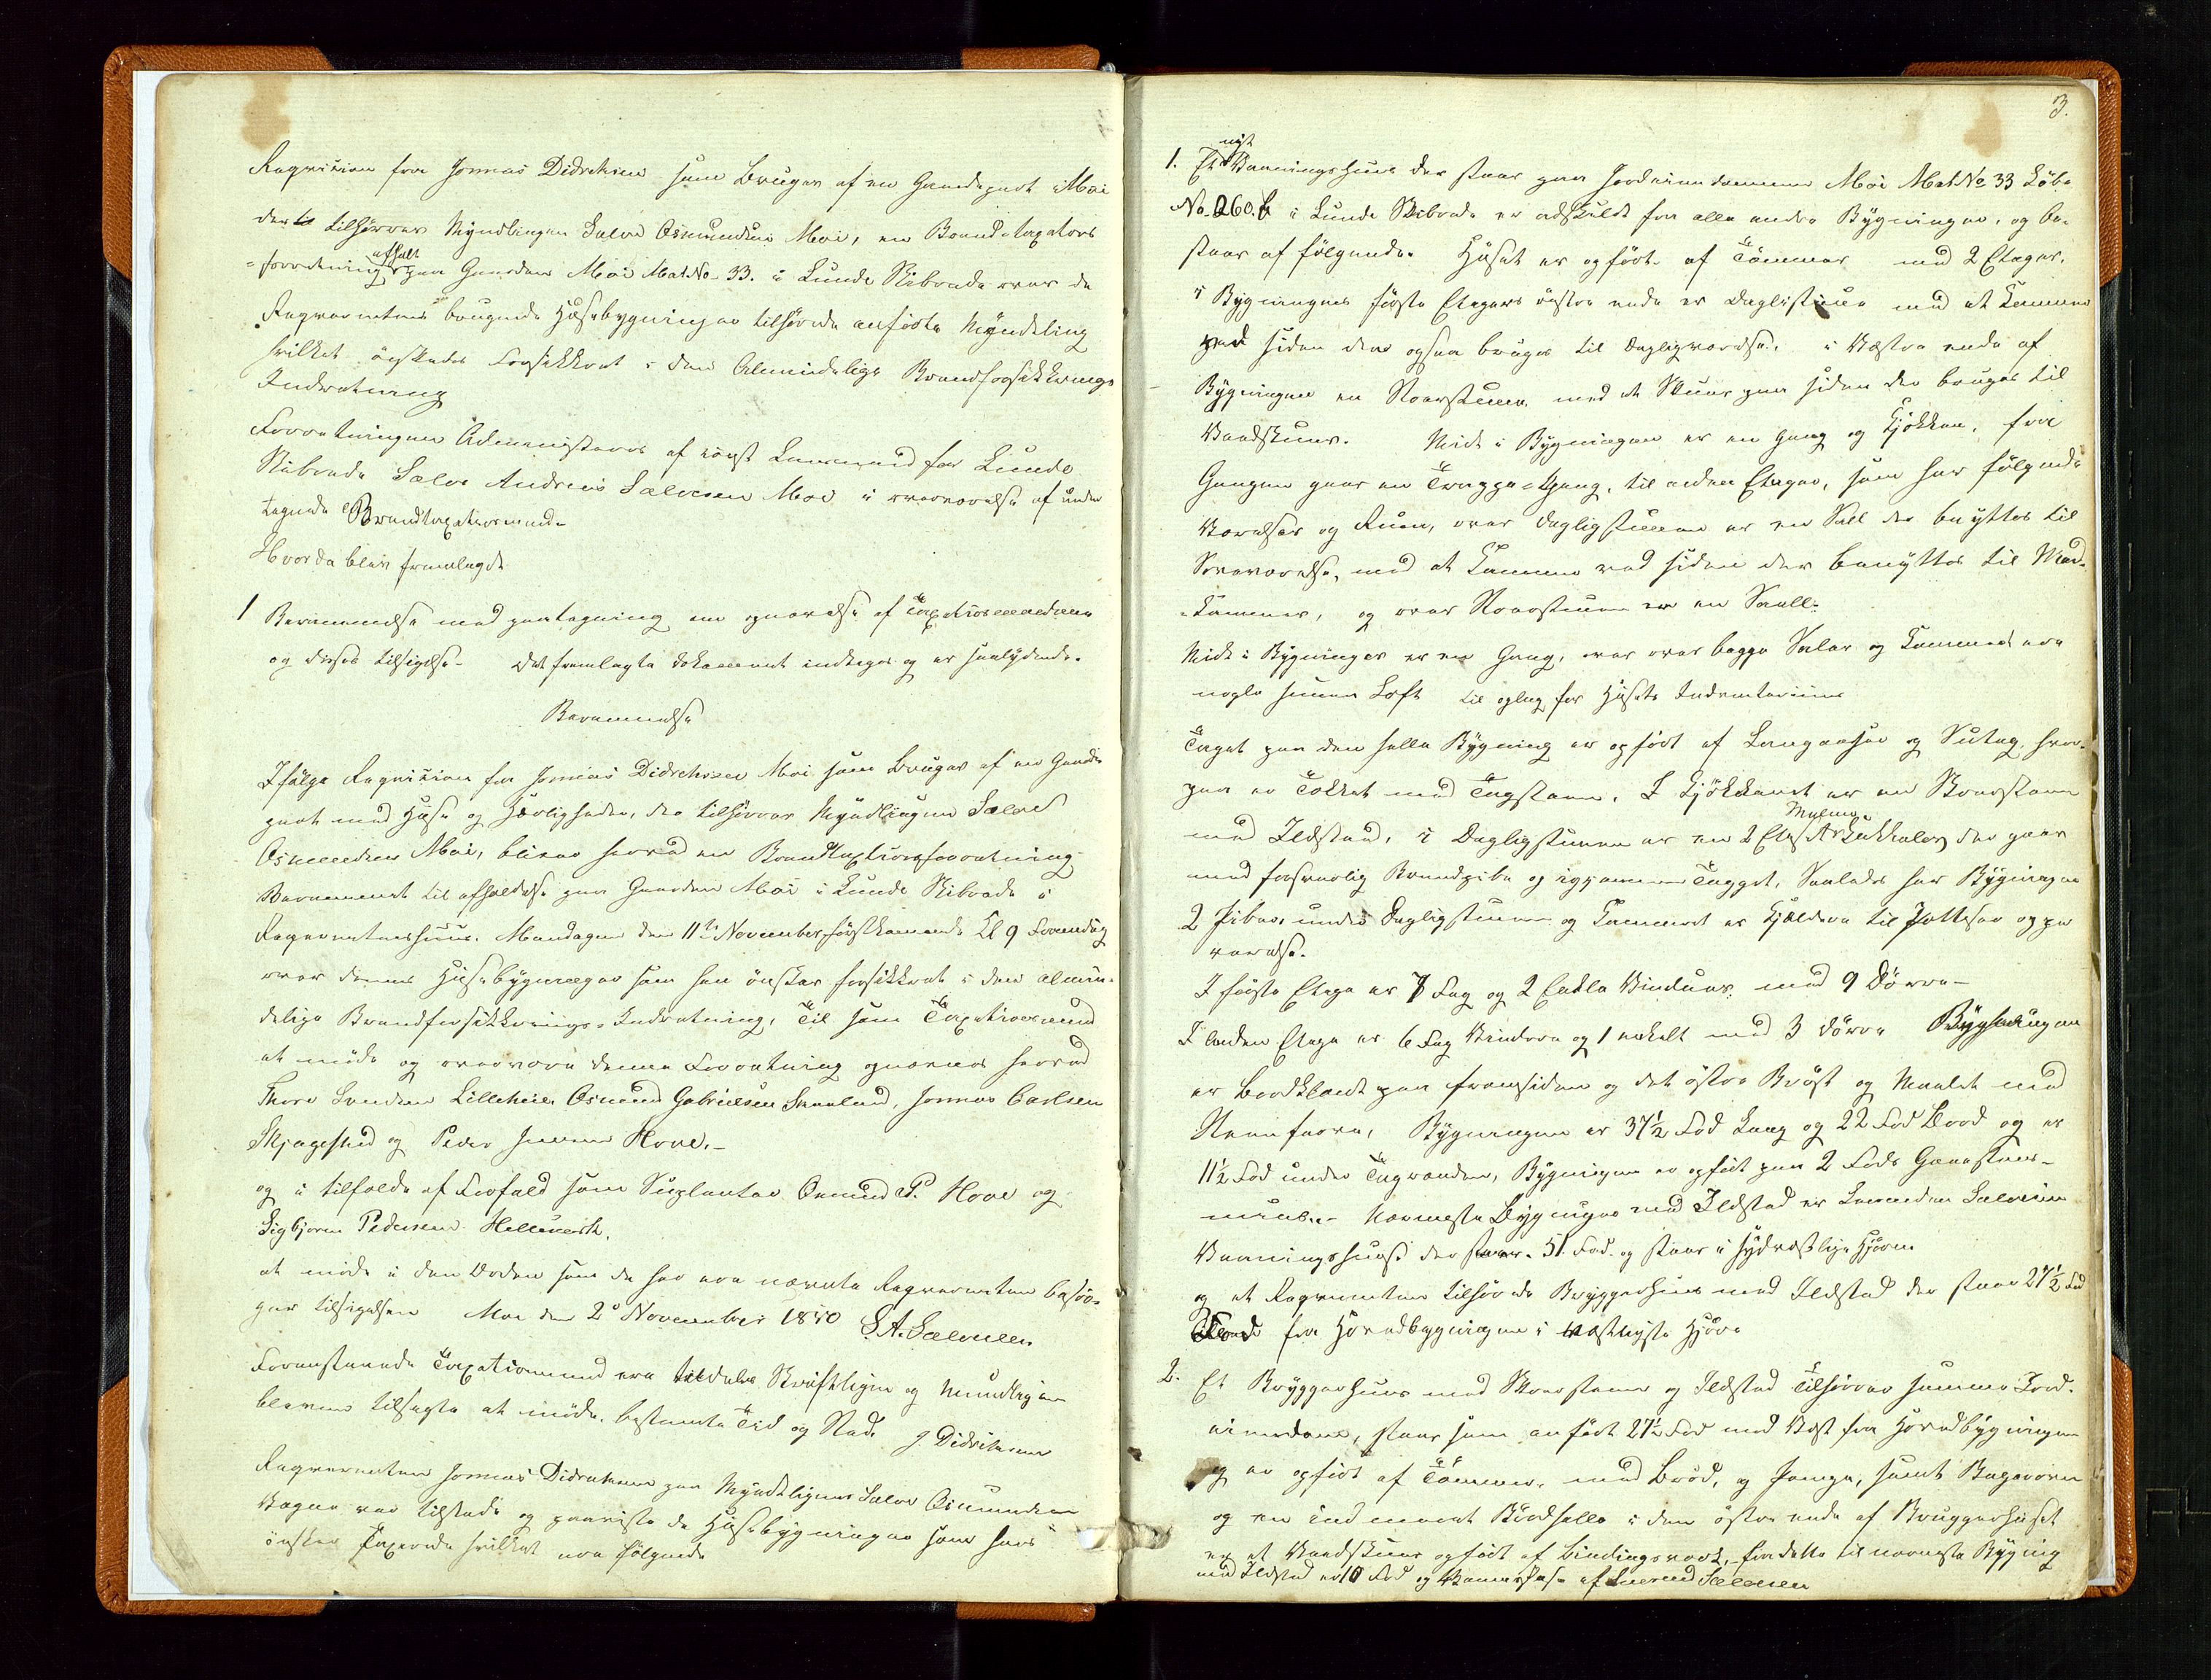 Reqvision fra Jonnas Didrehsen som Bruger af en Gaardspart i Moi
der tilhörrer Myndlingen Salve Osmundsen Moi, en Brandtaxations
=forretning afholt paa Gaarden Moi Mat No 33. i Lunde Skibrede over de
Reqvirentens brugende Huusebygninger tilhörende anförte Myndeling
hvilket önskedes Forsikkret i den Almindelige Brandforsikkrings
Indretning
Forretningen Administreres af const Lensmand for Lunde
Skibrede Salve Andreas Salvesen Moi i overværelse af under
tegnede Brandtaxationsmænd
Hvorda blev fremlagdt
1 Berammelse med paategning om opnævnelse af Taxationsmændene
og disses tilsigelse- Det fremlagte Dokument indtages og er saalydende.
Berammelse
Ifölge Reqvision fra Jonnas Didrehsen Moi som Bruger af en Gaards
part med Huse og Herligheder, der tilhörrer Myndlingen Salve
Osmundsen Moi, bliver herved en Brandtaxtionsforretning
Berammet til afholdelse paa Gaarden Moi i Lunde Skibrede i
Reqvirentenshuus. Mandagen den 11te November förstkomende Kl 9 Formidag
over dennes Husebygninger som han önsker forsikkret i den almin-
delige Brandforsikkrings-Indretning, Til som Taxationsmænd
at möde og overvære denne Forretning opnævnes herved
Thore Svendsen Lillehei Osmund Gabrielsen Skaaland, Jonnas Carlsen
Skjagestad og Peder Hove.-
og i tilfælde af Forfald som Suplanter Omund P. Hove og
Sigbjorn Pedersen Hellevark.
at möde i den Orden som de her ere nævnte Reqvirenten besör-
ger tilsigelsen Moi den 2de November 1850 S.A. Salvesen
Foranstaaende Taxationsmænd ere tildels Skriftligen og Mundligen
bleven tilsagte at möde, bestemte Tid og Sted. J Didriksen
Reqvirenten Jonnas Didreksen paa Myndlingens Salve Osmundsen
Vegne var tilstede og paaviste de Husebygninger som hans
önsker Taxerede hvilket ere fölgende
3.
1. Et nyt Vaaningshuus der staar paa Jordeiendommen Moi Mat No 33 Löbe
No 260.b i Lunde Skibrede er adskildt fra alle andre Bygninger, og be-
staar af fölgende. Huset er opfört af Tömmer med 2 Etager.
i Bygningens förste Etagers östre ende er Daglistue med et Kammer
ved siden der ogsaa bruges til dagligværelse. i Væstre ende af
Bygningen en Roverstue med et Skuur paa siden der bruges til
Vaadskuur. Midt i Bygningen er en Gang og Kjökken, fra
Gangen gaar en Trappe-Gang, til anden Etage, som har fölgende
Værelser og Rum, over dagligstuen er en Sall der benyttes til
Soveværelse, med et Kammer ved siden der benyttes til Mad-
-Kammer, og over Roverstuen er en Sall.
Midt i Bygningen er en Gang, over begge Saler og Kammret ere
nogle Loft til oplag for Husets Indventarium
Taget paa den helle Bygning er opfört af Langaaser og Sutag, hvor-
paa er Tækket med Tagsteen. I Kjökkenet er en Skorsteen
med Ildstæd, i Dagligstuen er en 2 Etags Kakkelovn der gaar
med forsvarlig Brandpibe og igjennem Tagget, Saaledes har Bygningen
2 Piber. under Dagligstuen og Kammret er Kjældere til Potteser opbe
varelse.
I förste Etage er 7 Fag og 2 Enkle Vinduer, med 9 Dörre-
I Anden Etage er 6 Fag Vinduer og 1 enkelt med 3 dörre Bygningen
er Bordklædt paa fremsiden og det östre Bröst og Maalet med
Steenfarve, Bygningen er 37½ Fod Lang og 22 Fod Bred og er
11½ Fod under Tagranden, Bygningen er opfört paa 2 Fods Graasteens-
muur.- Nærmeste Bygninger med Ildsted er Lensmden Salvesen
Vaaningshuus der staar 51 Fod og staar i Sydvæstlige Hjörne
og et Reqvirenten tilhörende Bryggerhuus med Ildstæd der staar 27½ Fod
fra Hovedbygningen i Hjörne
2. Et Bryggerhuus med Skorsteen og Ildstæd Tilhörrer samme Jord-
eiendom, staar som anfört 27½ Fod mod Vest fra Hovedbygningen
og er opfört af Tömmer, med Bröd, og Pange, samt Bagerovn
og en indmuret i den östre ende af Bryggerhuset
er et Vaadskuur opfört af Bindingsværk, fra dette til nærmeste Bygning
med Ildstæd er 10 Fod og Vaaningshuse af Lensmd Salvesen